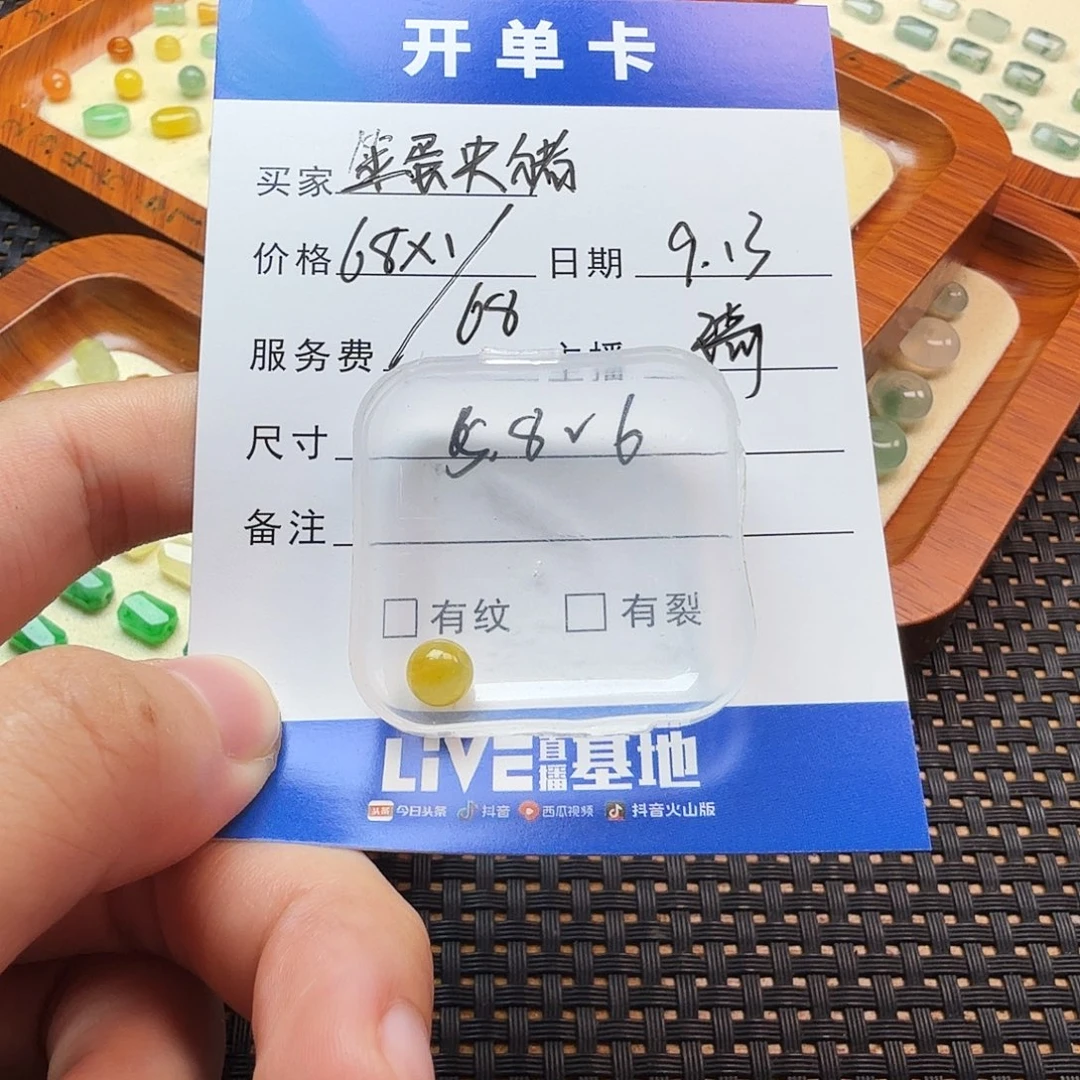 开单卡
买家
价格 68×1 日期 9.13
服务费 68 主播
尺寸 5.8 6
备注
有纹 有裂
LiVE直播基地
头条 今日头条 抖音 西瓜视频 抖音火山版